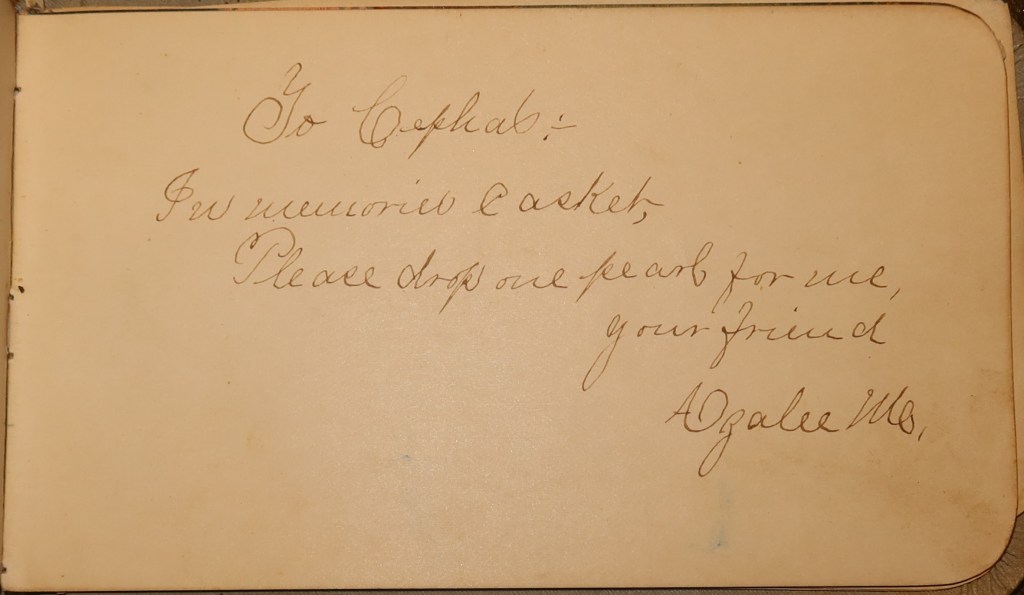 To Cephas:-
In memories casket,
Please drop one pearl for me,
your friend
Azalee Mc.